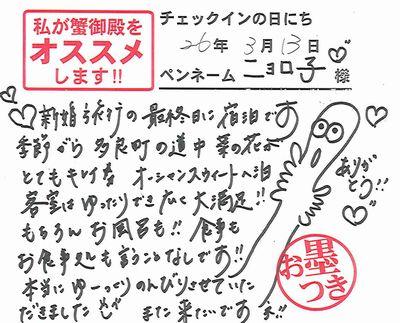 私が蟹御殿を
オススメ
します!!
チェックインの日にち
26年 3月13日
ペンネーム ニョロ子 様
新婚旅行の最終日に宿泊です
季節がら 多良町の道中 菜の花が
とてもキレイで オーシャンスウィートへ泊
客室はゆったりでき広く 大満足!!
もちろん お風呂も!! 食事も
お食事処も言うことなしです!!
本当にゆーっくりのんびりさせていた
だきました また来たいです
ありが
とう!!
お墨
つき